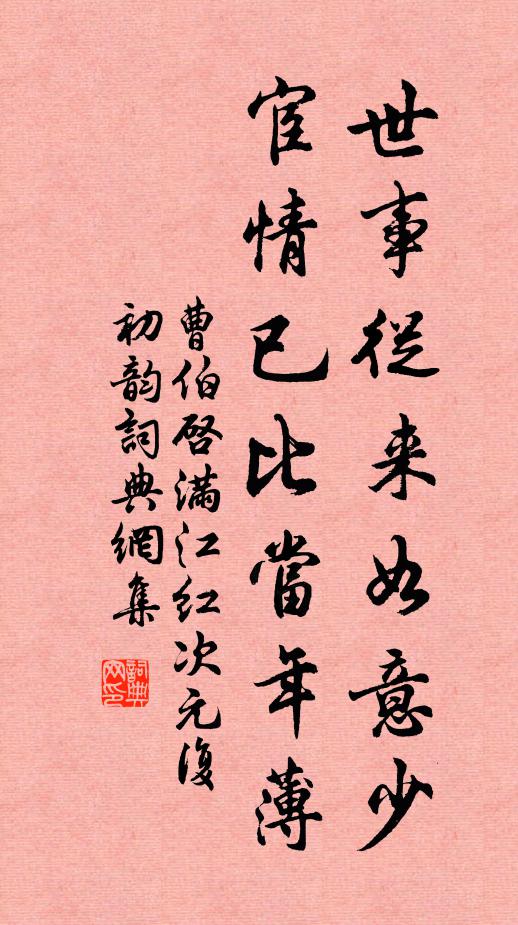 世事從来如意少
宦情已比當年薄
曹伯啓滿江红次元復
初韵詞典網集
詞典网印